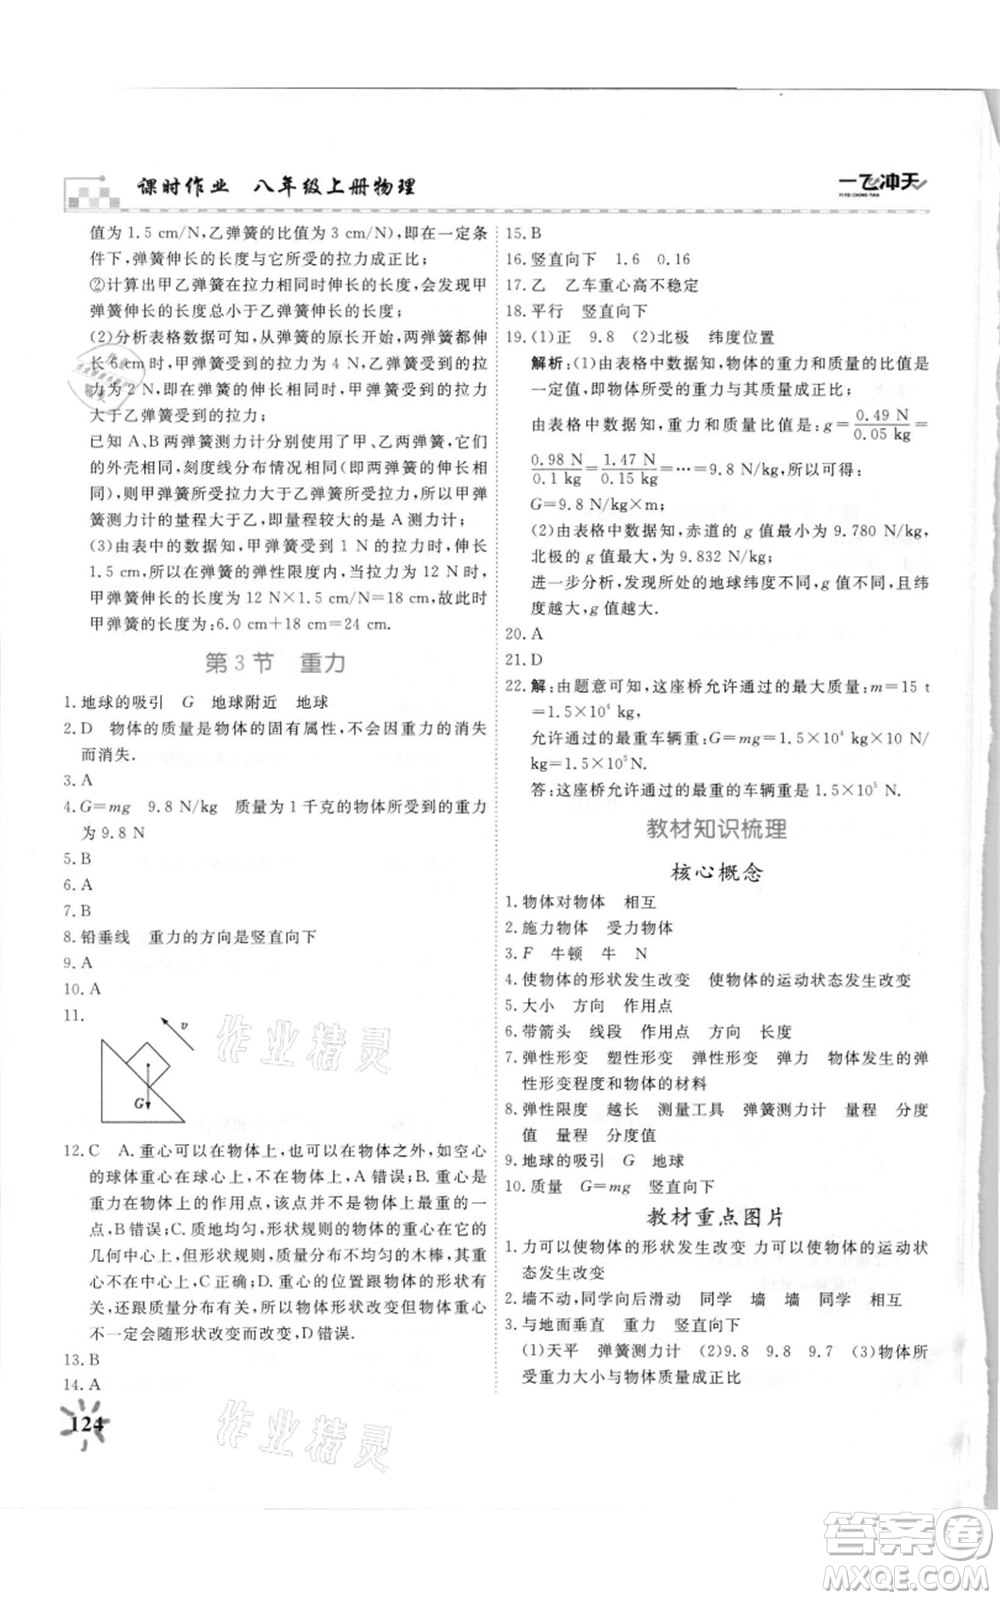 课时作业 八年级上册物理
一飞冲天
YI FEI CHONG TIAN
值为 1.5 cm/N,乙弹簧的比值为 3 cm/N,即在一定条
件下,弹簧伸长的长度与它所受的拉力成正比;
②计算出甲乙弹簧在拉力相同时伸长的长度发现甲
弹簧伸长的长度总小于乙弹簧伸长的长度.
(2)分析表格数据可知,从弹簧的原长开始,两弹簧都伸
长 6 cm 时,甲弹簧受到的拉力为 4 N,乙弹簧受到的拉
力为 2 N,甲乙弹簧的伸长的长度相同时,甲弹簧的拉力
大于乙弹簧受到的拉力;
已知 A、B 两弹簧测力计分别使用了甲、乙两弹簧,它们
的外壳相同,刻度线分布情况相同(即两弹簧伸长长度相
同),则甲弹簧所受拉力大于乙弹簧所受拉力,所以甲弹
簧测力计的量程大于乙,即量程较大的是 A 测力计;
(3)由表中的数据可知,甲弹簧受到 1 N 的拉力伸长
1.5 cm,所以在弹簧的弹性限度内,当拉力为 12 N 时,
甲弹簧伸长的长度为 12 N×1.5 cm/N=18 cm,故此时
甲弹簧的长度为:6.0 cm+18 cm=24 cm.
第 3 节 重力
1. 地球的吸引 G 地球附近 地球
2. D 物体的质量是物体的固有属性,不会因重力的消失
而消失.
3. A
4. G=mg 9.8 N/kg 质量为 1 千克的物体所受到的重力
为 9.8 N
5. B
6. A
7. B
8. 铅垂线 重力的方向是竖直向下
9. A
10. A
11.
v
G
12. C A. 重心可以在物体上,也可以在物体之外,如空心
的球体重心在球心上,不在物体上,A 错误;B. 重心是
重力在物体上的作用点,该点并非物体上最重的一
点,B 错误;C. 质地均匀,形状规则的物体的重心在它的
几何中心上,但形状规则,质量分布不均匀的木棒,其
重心不一定在它的中心,C 正确;D. 重心的位置跟物体
的形状有关,还跟质量分布有关,所以物体形状改变,
还跟质量分布有关,所以物体形状改变但物体重心
不一定会随形状改变而改变,D 错误.
13. B
14. A
124
15. B
16. 竖直向下 1.6 0.16
17. 乙 乙车重心高不稳定
18. 平行 竖直向下
19. (1)正 9.8 (2)北极 纬度位置
解析:(1)由表格中数据知,物体的重力和质量的比值是
一定值,即物体所受的重力与其质量成正比;
由表格中数据知,重力和质量比值是:g=0.49 N/0.05 kg=
0.98 N/0.1 kg=1.47 N/0.15 kg=…=9.8 N/kg,所以可得:
G=9.8 N/kg×m;
(2)由表格中数据知,赤道的 g 值最小为 9.780 N/kg,
北极的 g 值最大,为 9.832 N/kg;
进一步分析,发现所处的地球纬度不同,g 值不同,且纬
度越大,g 值越大.
20. A
21. D
22. 解:由题意可知,这座桥允许通过的质量:m=15 t
=1.5×10⁴ kg,
允许通过的最重车辆重:G=mg=1.5×10⁴ kg×10
N/kg=1.5×10⁵ N.
答:这座桥允许通过的最重的车辆重是 1.5×10⁵ N.
教材知识梳理
核心概念
1. 物体对物体 相互
2. 施力物体 受力物体
3. F 牛顿 牛 N
4. 使物体的形状发生改变 使物体的运动状态发生改变
5. 大小 方向 作用点
6. 带箭头 线段 作用点 方向 长度
7. 弹性形变 塑性形变 弹性形变 弹力 物体发生的弹
性形变程度和物体的材料
8. 弹性限度 越长 测量工具 弹簧测力计 量程 分度
值 量程 分度值
9. 地球的吸引 G 地球
10. 质量 G=mg 竖直向下
教材重点图片
1. 力可以使物体的形状发生改变 力可以使物体的运动状
态发生改变
2. 墙不动,同学向后滑动 同学 墙 墙 同学 相互
3. 与地面垂直 重力 竖直向下
(1)天平 弹簧测力计 (2)9.8 9.8 9.7 (3)物体所
受重力大小与物体质量成正比
作业精灵
作业精灵
答案卷
MXQE.COM